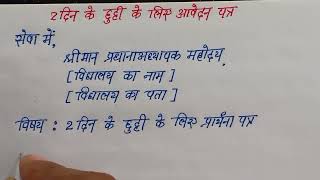 2 दिन के छुट्टी के लिए आवेदन पत्र
सेवा में,
श्रीमान प्रधानाध्यापक महोदय,
[विद्यालय का नाम]
[विद्यालय का पता]
विषय : 2 दिन के छुट्टी के लिए प्रार्थना पत्र